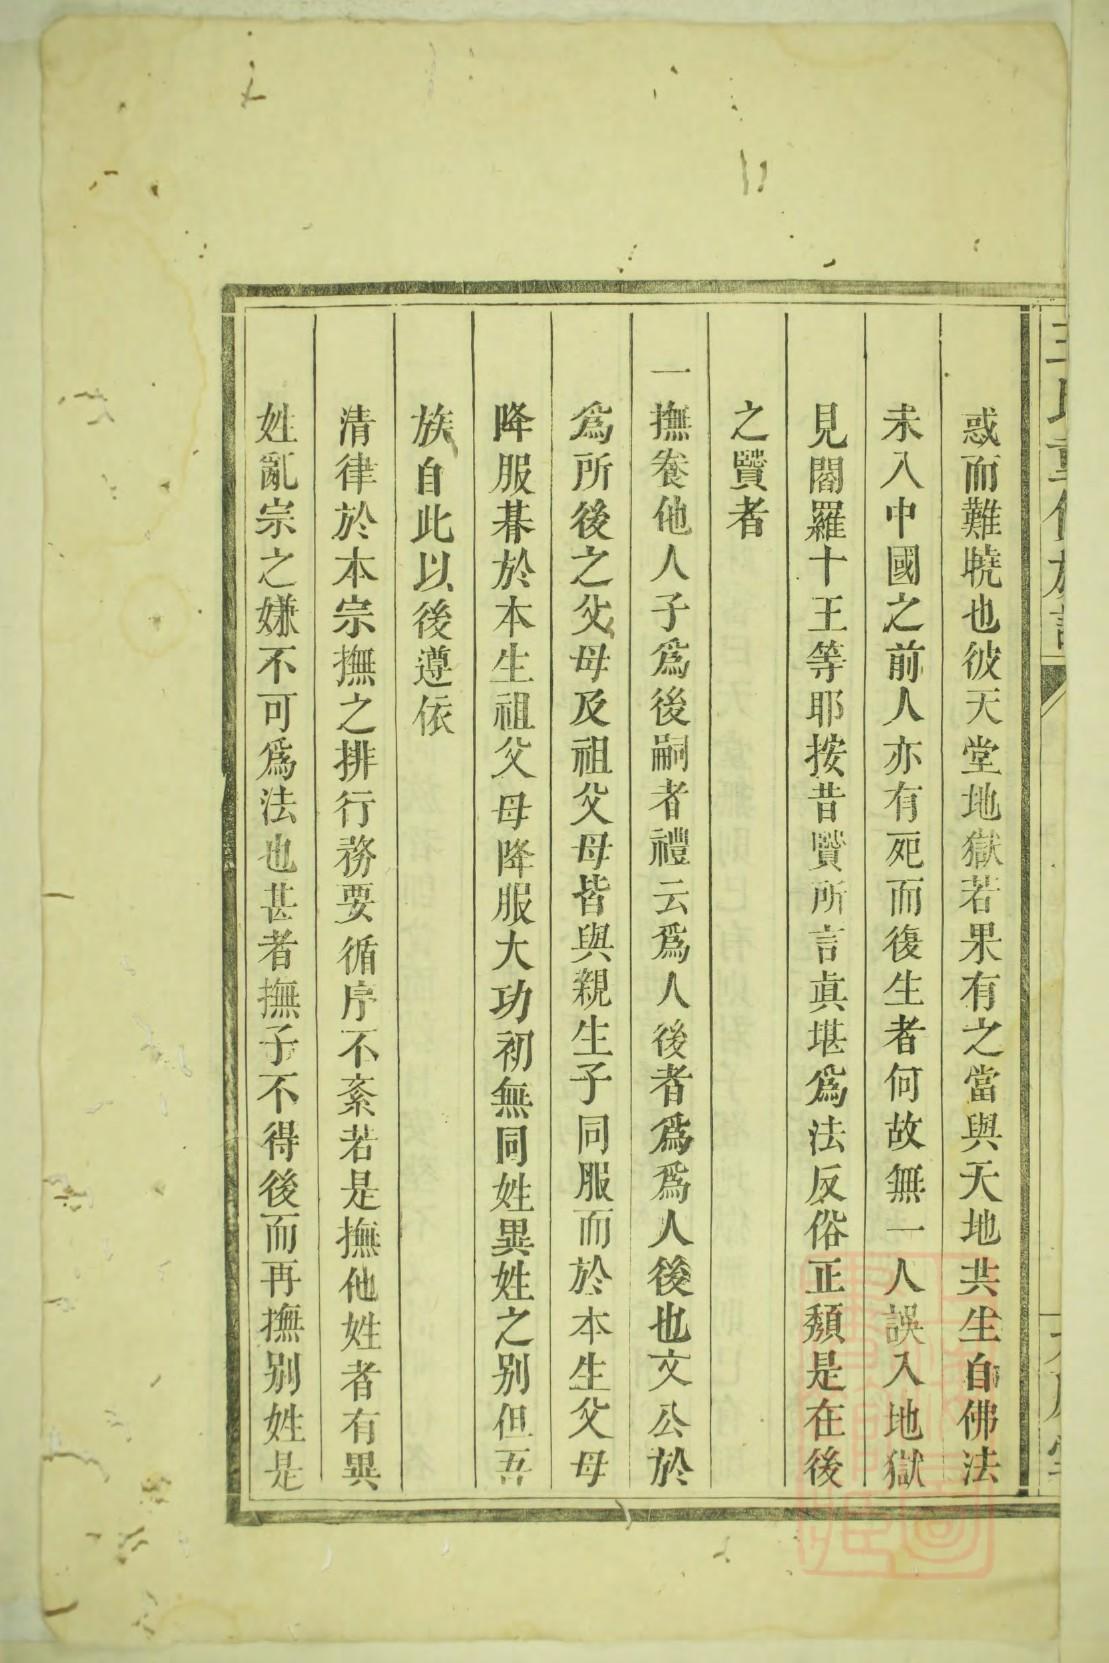 惑而難曉也彼天堂地獄若果有之當與天地共生自佛法
未入中國之前人亦有死而復生者何故無一人誤入地獄
見閻羅十王等耶按昔賢所言眞堪爲法反俗正頽是在後
之賢者
一撫養他人子爲後嗣者禮云爲人後者爲爲人後也文公於
爲所後之父母及祖父母皆與親生子同服而於本生父母
降服朞於本生祖父母降服大功初無同姓異姓之别但吾
族自此以後遵依
清律於本宗撫之排行務要循序不紊若是撫他姓者有異
姓亂宗之嫌不可爲法也甚者撫子不得後而再撫别姓是